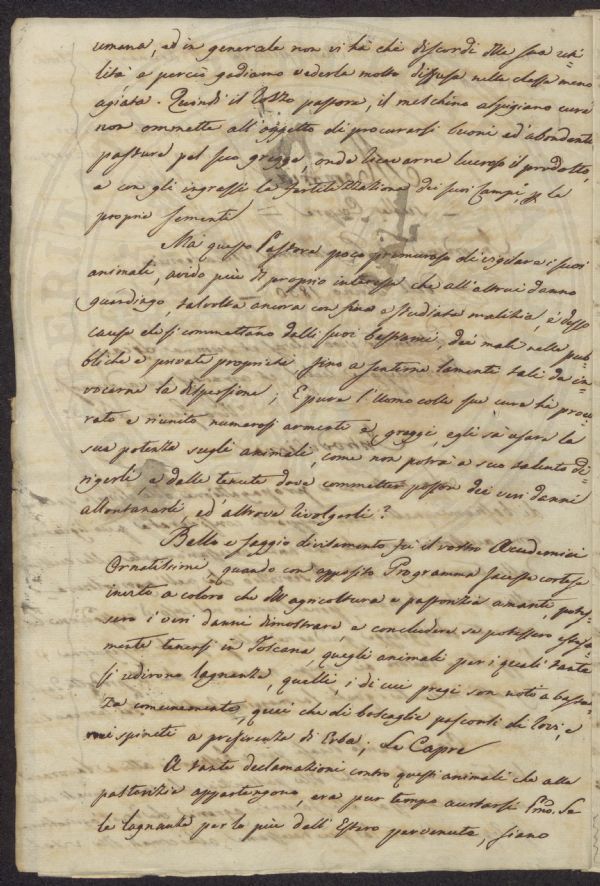 umana, ed in generale non vi hà chè discordi dlla sua uti=
lità e perciò godiamo vederle molto diffuse nella classe meno
agiata. Quindi il rozzo pastore, il meschino aspigiano curi
non ommette all'oggetto di procurarsi buoni ed'abondanti
pasture pel suo gregge, onde ricavarne lucroso il prodotto,
e con gli ingressi la fertilizzazione dei suoi Campi, p le
proprie sementi
Mà questo Pastore poco premuroso di vigilare i suoi
animali, avido più dl proprio interesse che all'altrui danno
guardingo, talvolta ancora con fina e studiata malizia, è desso
causa che si commettano dalli suoi bestiami, dei mali nelle pub=
bliche e private proprietà fino a sentirne lamenti tali da in=
vocarne la dispersione; Epure l'Uomo colle sue cure hà procu=
rato e riunito numerosi armenti e greggi, egli sà usare la
sua potenza sugli animali, come non potrà a suo talento di=
rigerli, e dalle tenute dove commetter posson dei veri danni
allontanarli, ed'altrove rivolgerli?
Bello e saggio divisamento fù il vostro Accademici
Ornatissimi, quando con apposito Programma faceste cortese
invito a coloro che dll'agricoltura e pastorizia amanti, potes=
sero i veri danni dimostrare, e concludere se potessero
mente tenersi in Toscana quegli animali per i quali tante
si udirono lagnanze, quelli, i di cui pregi son noti a bastan
za comunemente, quei che di boscaglie pasconti di rovi, e
spineti a preferenza di Erba; Le Capre
A tante declamazioni contro questi animali che alla
pastorizia appartengono, era pur tempo Se
le lagnanze per lo più dall'Estero pervenute, siano